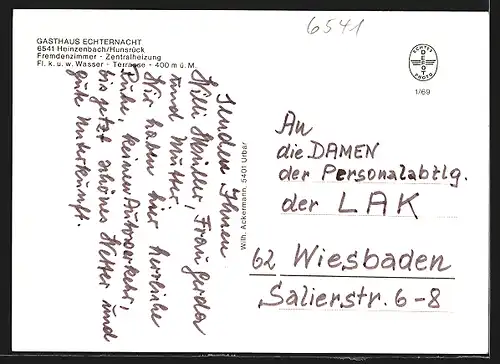 6541
GASTHAUS ECHTERNACHT
6541 Heinzenbach/Hunsrück
Fremdenzimmer - Zentralheizung
Fl. k. u. w. Wasser - Terrasse - 400 m ü. M.
ECHTES
PHOTO
1/69
Wilh. Ackermann, 5401 Urbar
Senden Ihnen
Willi Müller, Frau Gerda
und Mutter.
Wir haben hier herrliche
Ruhe, keinen Autoverkehr,
bis jetzt schönes Wetter und
gute Unterkunft.
An
die DAMEN
der Personalabtlg.
der LAK
62 Wiesbaden
Salierstr. 6-8